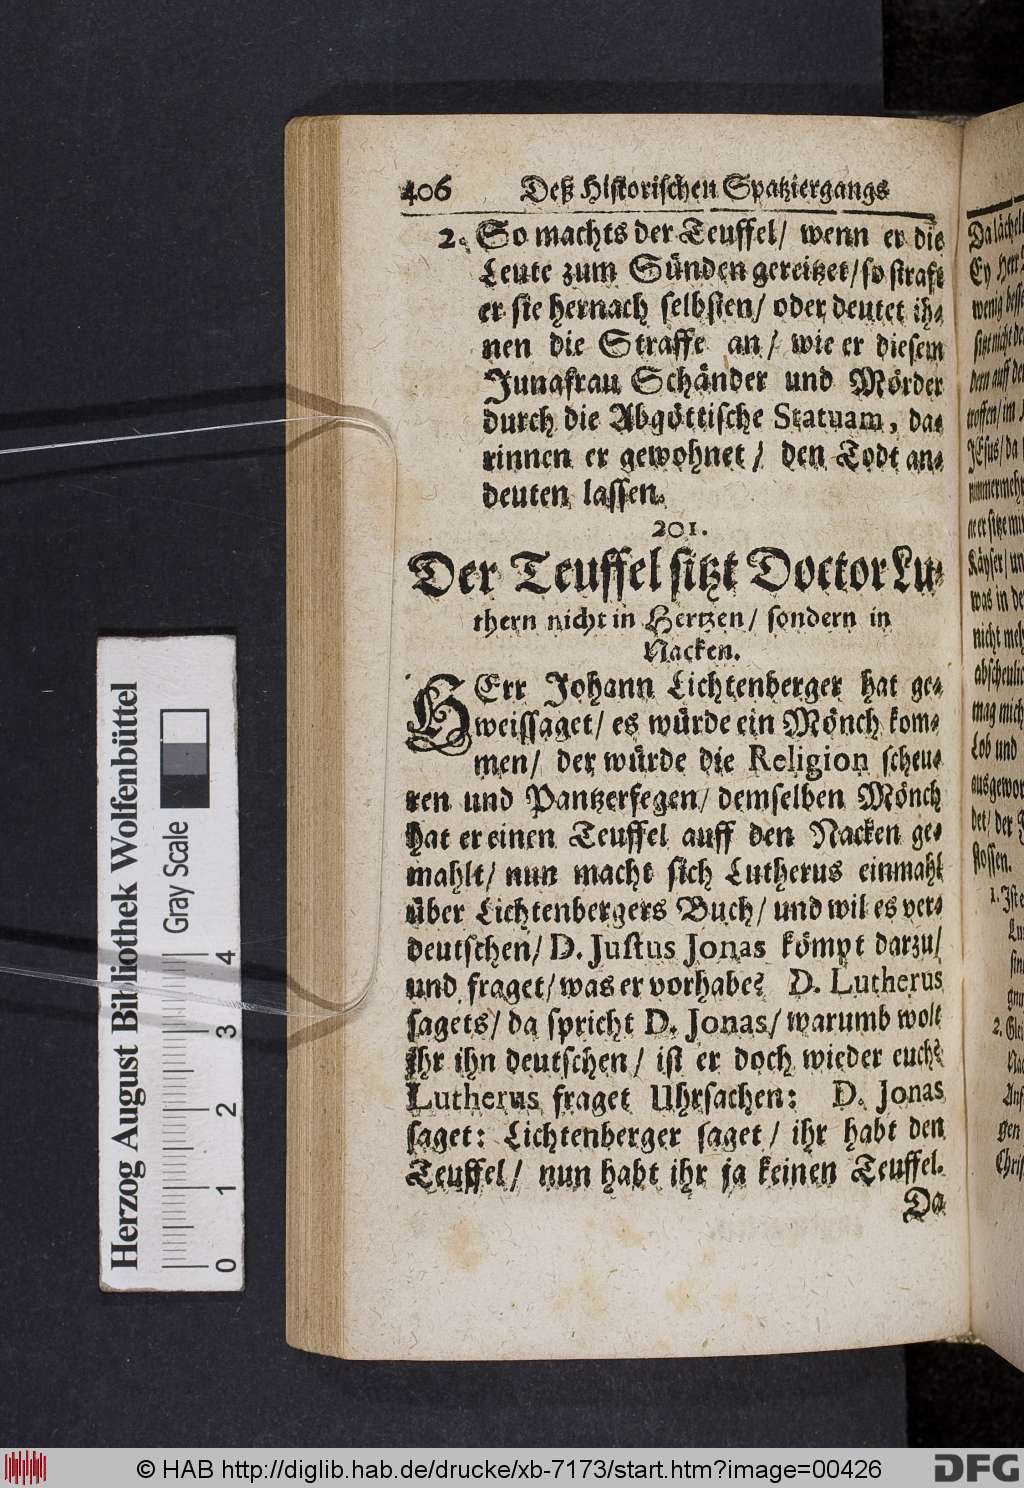 406 Deß Historischen Spatziergangs
2. So machts der Teuffel/ wenn er die
Leute zum Sünden gereitzet/ so straft
er sie hernach selbsten/ oder deutet ih-
nen die Straffe an/ wie er diesem
Junafrau Schänder und Mörder
durch die Abgöttische Statuam, da-
rinnen er gewohnet/ den Todt an-
deuten lassen.
201.
Der Teuffel sitzt Doctor Lu-
thern nicht in Hertzen/ sondern in
Nacken.
HErr Johann Lichtenberger hat ge-
weissaget/ es würde ein Mönch kom-
men/ der würde die Religion scheu-
ren und Pantzerfegen/ demselben Mönch
hat er einen Teuffel auff den Nacken ge-
mahlt/ nun macht sich Lutherus einmahl
über Lichtenbergers Buch/ und wil es ver-
deutschen/ D. Justus Jonas kömpt darzu/
und fraget/ was er vorhabe? D. Lutherus
sagets/ da spricht D. Jonas/ warumb wolt
ihr ihn deutschen/ ist er doch wieder euch?
Lutherus fraget Uhrsachen: D. Jonas
saget: Lichtenberger saget/ ihr habt den
Teuffel/ nun habt ihr ja keinen Teuffel.
Da
Da lächel
Ey Herr
wenig besse
sitzt nicht de
dern auff de
woffen/ im
JEsus/ da
nimmermehr
ge er sitze mi
Käyser/ un
was in de
nicht meh
abscheulic
mag mich
Lob und
ausgewor
det/ der
stossen.
1. Ist e
Lu
sin
gnu
2. Gle
Nac
Anf
gen
Chris
Herzog August Bibliothek Wolfenbüttel
Gray Scale
0 1 2 3 4
© HAB http://diglib.hab.de/drucke/xb-7173/start.htm?image=00426
DFG